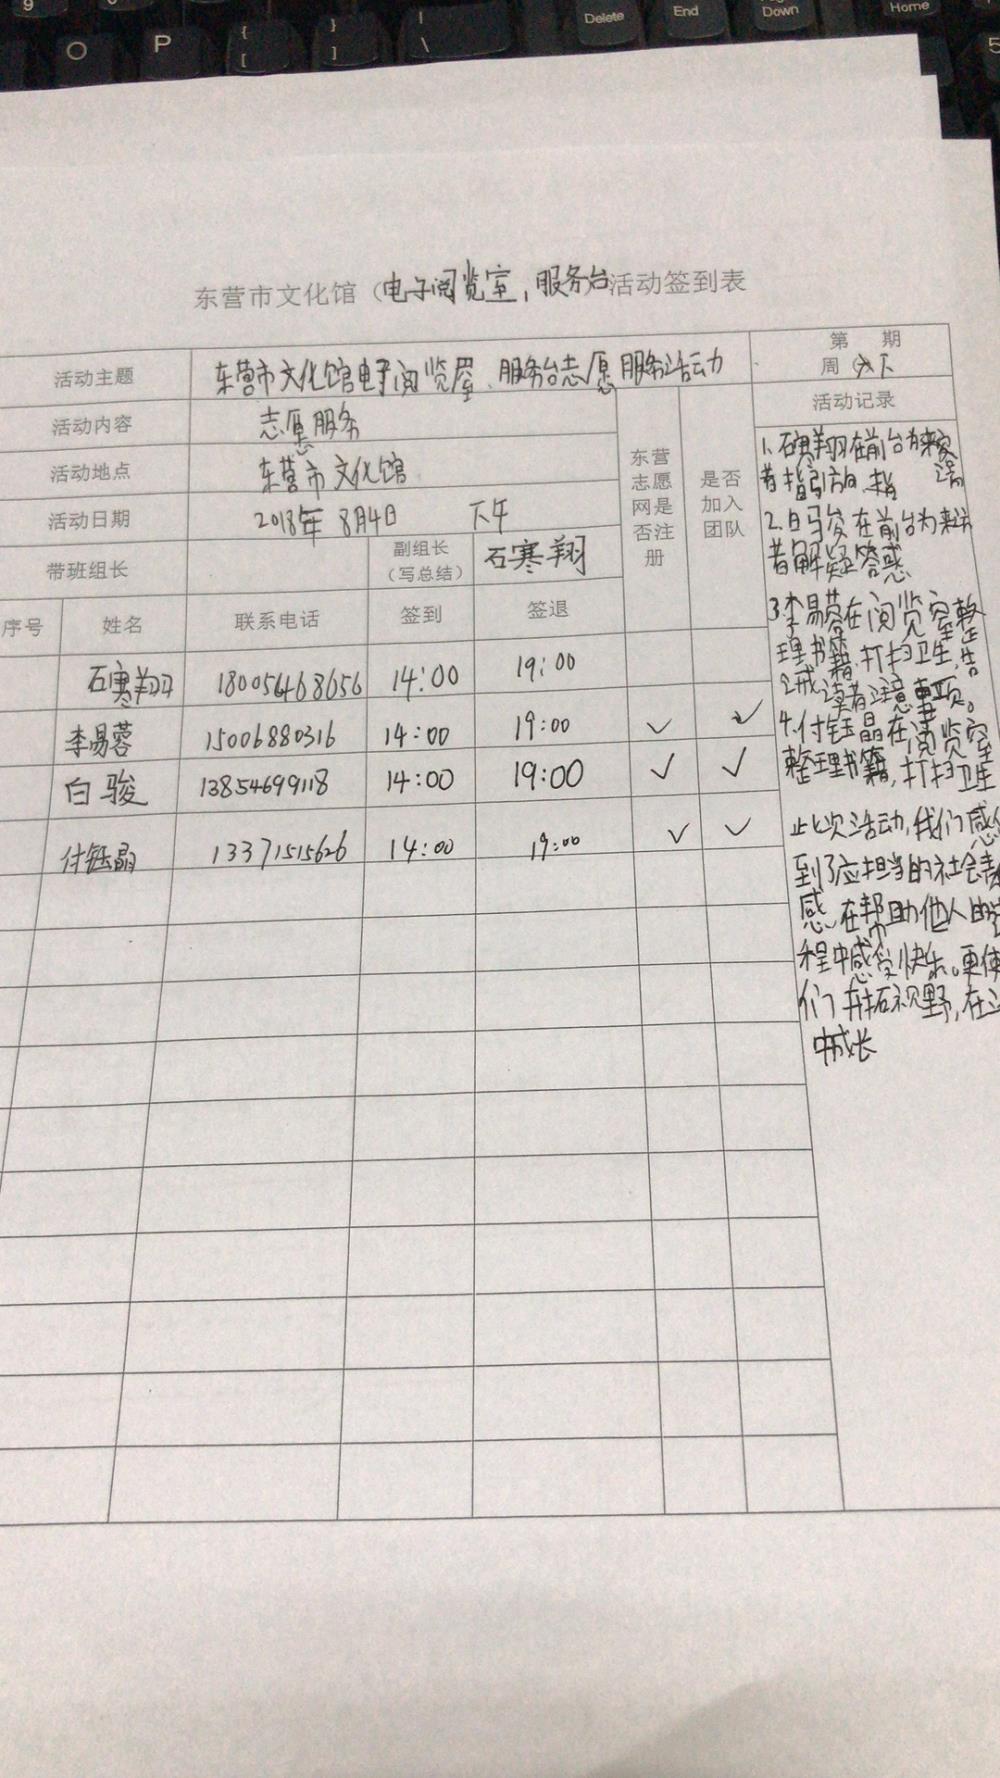 9
O
P
{
[
}
]
|
\
Delete
End
Down
Home
5
东营市文化馆（电子阅览室，服务台活动签到表
活动主题 东营市文化馆电子阅览室、服务台志愿服务活动 第 期
周 六下
活动内容 志愿服务 活动记录
活动地点 东营市文化馆
活动日期 2018年8月4日 下午
东营
志愿
网是
否注
册
是否
加入
团队
带班组长 副组长
（写总结） 石寒翔
序号 姓名 联系电话 签到 签退
石寒翔 18005468656 14:00 19:00
李易蓉 15006880316 14:00 19:00 ✓ ✓
白骏 13854699118 14:00 19:00 ✓ ✓
付钰晶 13371515626 14:00 19:00 ✓ ✓
1.石寒翔在前台为来客
者指引方向
2.白骏在前台为来访
者解疑答惑
3.李易蓉在阅览室整
理书籍,打扫卫生,告
诫读者注意事项。
4.付钰晶在阅览室
整理书籍,打扫卫生
此次活动,我们感
到了应担当的社会责
感,在帮助他人的
程中感受快乐。更使
们开拓视野,在
中成长